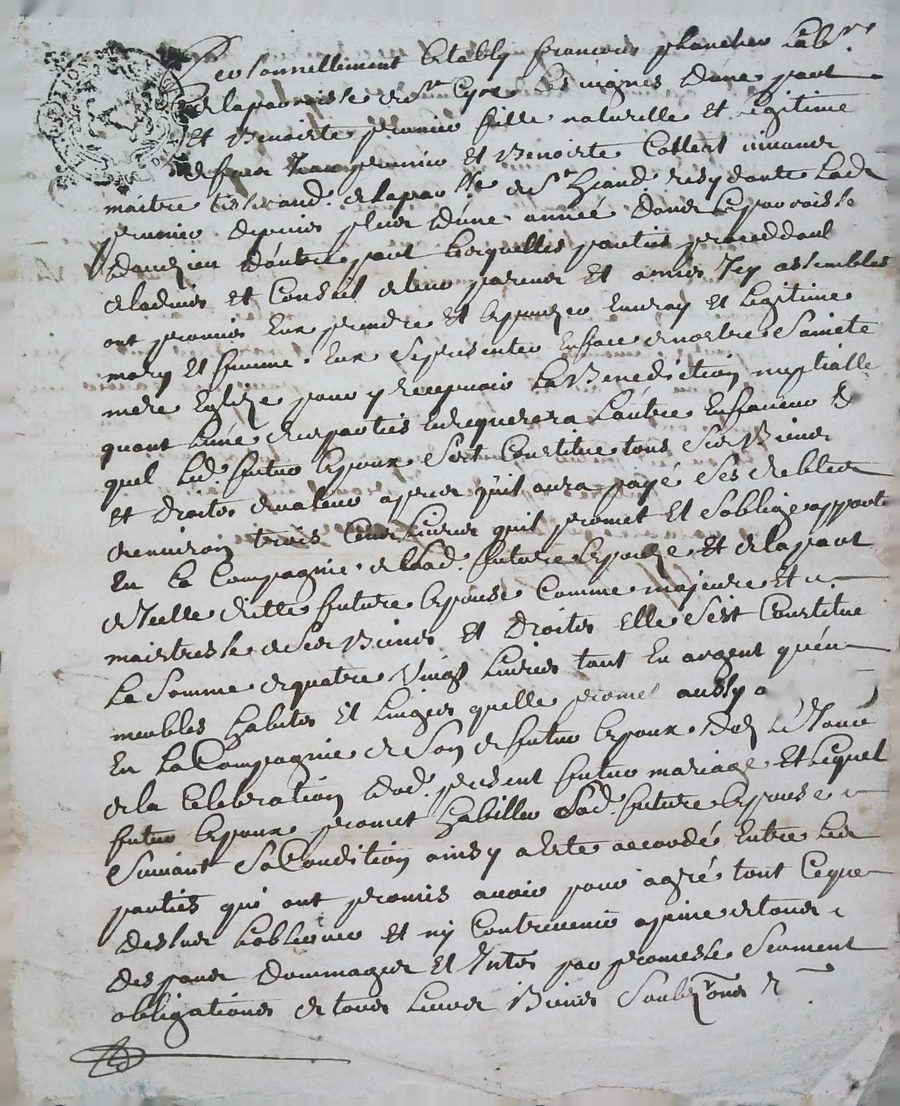 Personnellement Estably francois planchet Lab.r
de la parroisse de st Cyre Les vignes d'une part
Et Benoiste prunier fille naturelle et Legitime
de feu Jean prunier et Benoiste Collect vivant
maitre tisserand de la par.sse de st heand residante Lad
prunier depuis plus d'une année dans la parroisse
d'autre part Lesquelles parties proceddant
de ladvis et Conseil de leur parens et amis Icy assemblés
ont promis Eux prendre et Espouzer En vray et Legitime
mary et femme Eux se presenter En face de nostre Sainte
mere Eglize pour y recepvoir La Benediction nuptialle
quant L'une des parties En requerera L'autre En faveur de
quel Led. futur Espoux s'est Constitue tous ses Biens
et droits de valeur apres qu'il aura payé ses debtes
d'environ trois Cens Livres qu'il promet Et s'oblige apporter
En la Compagnie de lad. future Espouze et de la part
d'Icelle ditte future Espouse Comme majeure Et
maistresse de ses Biens et droits Elle s'est Constitue
La Somme de quatre vingt Livres tant En argent qu'en
meubles habits Et Linges quelle promet aussy
En La Compagnie de son d. futur Espoux Le Jour
de la Celebration dud. present futur mariage Et Lequel
futur Espoux promet habiller Lad. future Espouse
Suivant Sa Condition ainsy a Esté accordé Entre Les
parties qui ont promis avoir pour agré tout Ceque
dessus L'observer Et ny Contrevenir a peine de tous
despans dommages Et Inters par promesse Serment
obligations de tous Leurs Biens Soubz.ons &